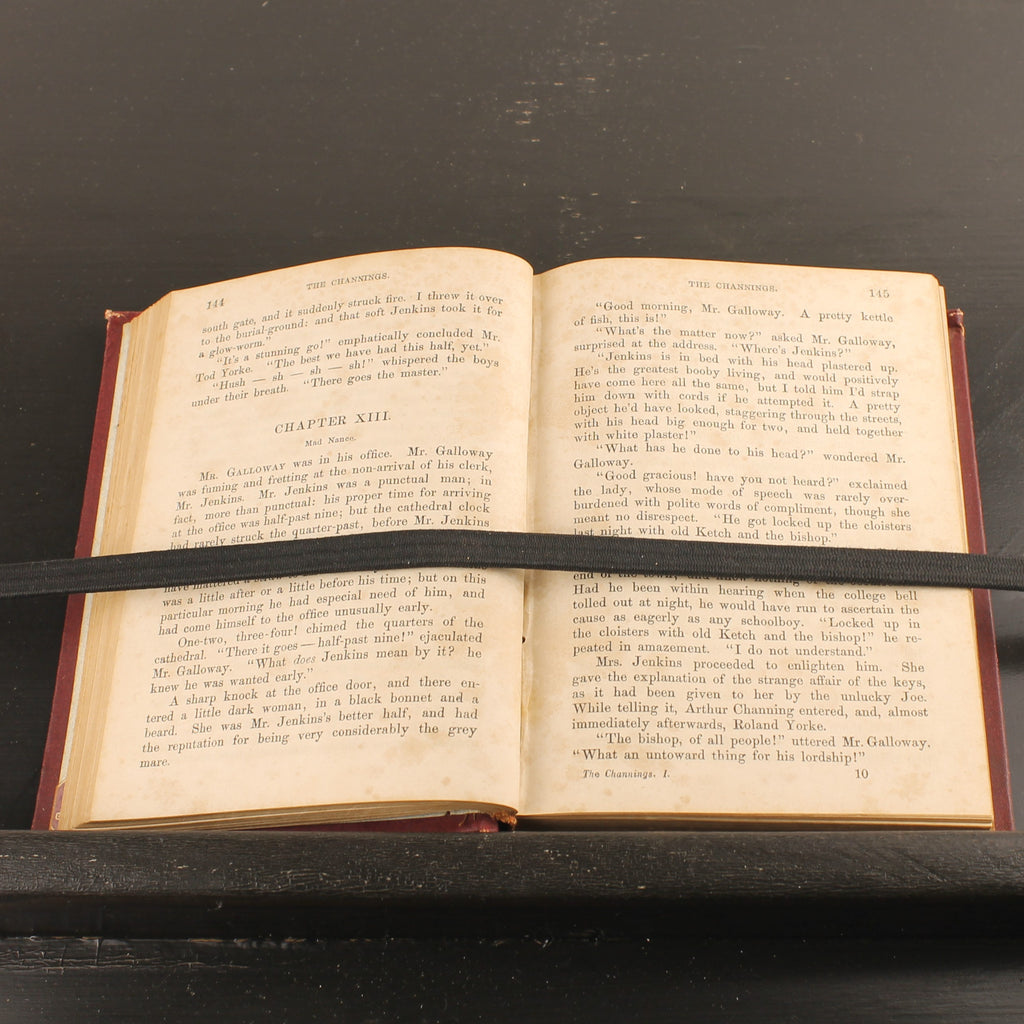 144
THE CHANNINGS.
south gate, and it suddenly struck fire. I threw it over
to the burial-ground: and that soft Jenkins took it for
a glow-worm."
"It's a stunning go!" emphatically concluded Mr.
Tod Yorke. "The best we have had this half, yet."
"Hush — sh — sh — sh!" whispered the boys
under their breath. "There goes the master."
CHAPTER XIII.
Mad Nance.
MR. GALLOWAY was in his office. Mr. Galloway
was fuming and fretting at the non-arrival of his clerk,
Mr. Jenkins. Mr. Jenkins was a punctual man; in
fact, more than punctual: his proper time for arriving
at the office was half-past nine; but the cathedral clock
had rarely struck the quarter-past, before Mr. Jenkins
have mattered a
was a little after or a little before his time; but on this
particular morning he had especial need of him, and
had come himself to the office unusually early.
One-two, three-four! chimed the quarters of the
cathedral. "There it goes — half-past nine!" ejaculated
Mr. Galloway. "What does Jenkins mean by it? he
knew he was wanted early."
A sharp knock at the office door, and there en-
tered a little dark woman, in a black bonnet and a
beard. She was Mr. Jenkins's better half, and had
the reputation for being very considerably the grey
mare.
THE CHANNINGS.
145
"Good morning, Mr. Galloway. A pretty kettle
of fish, this is!"
"What's the matter now?" asked Mr. Galloway,
surprised at the address. "Where's Jenkins?"
"Jenkins is in bed with his head plastered up.
He's the greatest booby living, and would positively
have come here all the same, but I told him I'd strap
him down with cords if he attempted it. A pretty
object he'd have looked, staggering through the streets,
with his head big enough for two, and held together
with white plaster!"
"What has he done to his head?" wondered Mr.
Galloway.
"Good gracious! have you not heard?" exclaimed
the lady, whose mode of speech was rarely over-
burdened with polite words of compliment, though she
meant no disrespect. "He got locked up the cloisters
last night with old Ketch and the bishop."
end of the town,
Had he been within hearing when the college bell
tolled out at night, he would have run to ascertain the
cause as eagerly as any schoolboy. "Locked up in
the cloisters with old Ketch and the bishop!" he re-
peated in amazement. "I do not understand."
Mrs. Jenkins proceeded to enlighten him. She
gave the explanation of the strange affair of the keys,
as it had been given to her by the unlucky Joe.
While telling it, Arthur Channing entered, and, almost
immediately afterwards, Roland Yorke.
"The bishop, of all people!" uttered Mr. Galloway.
"What an untoward thing for his lordship!"
The Channings. I.
10